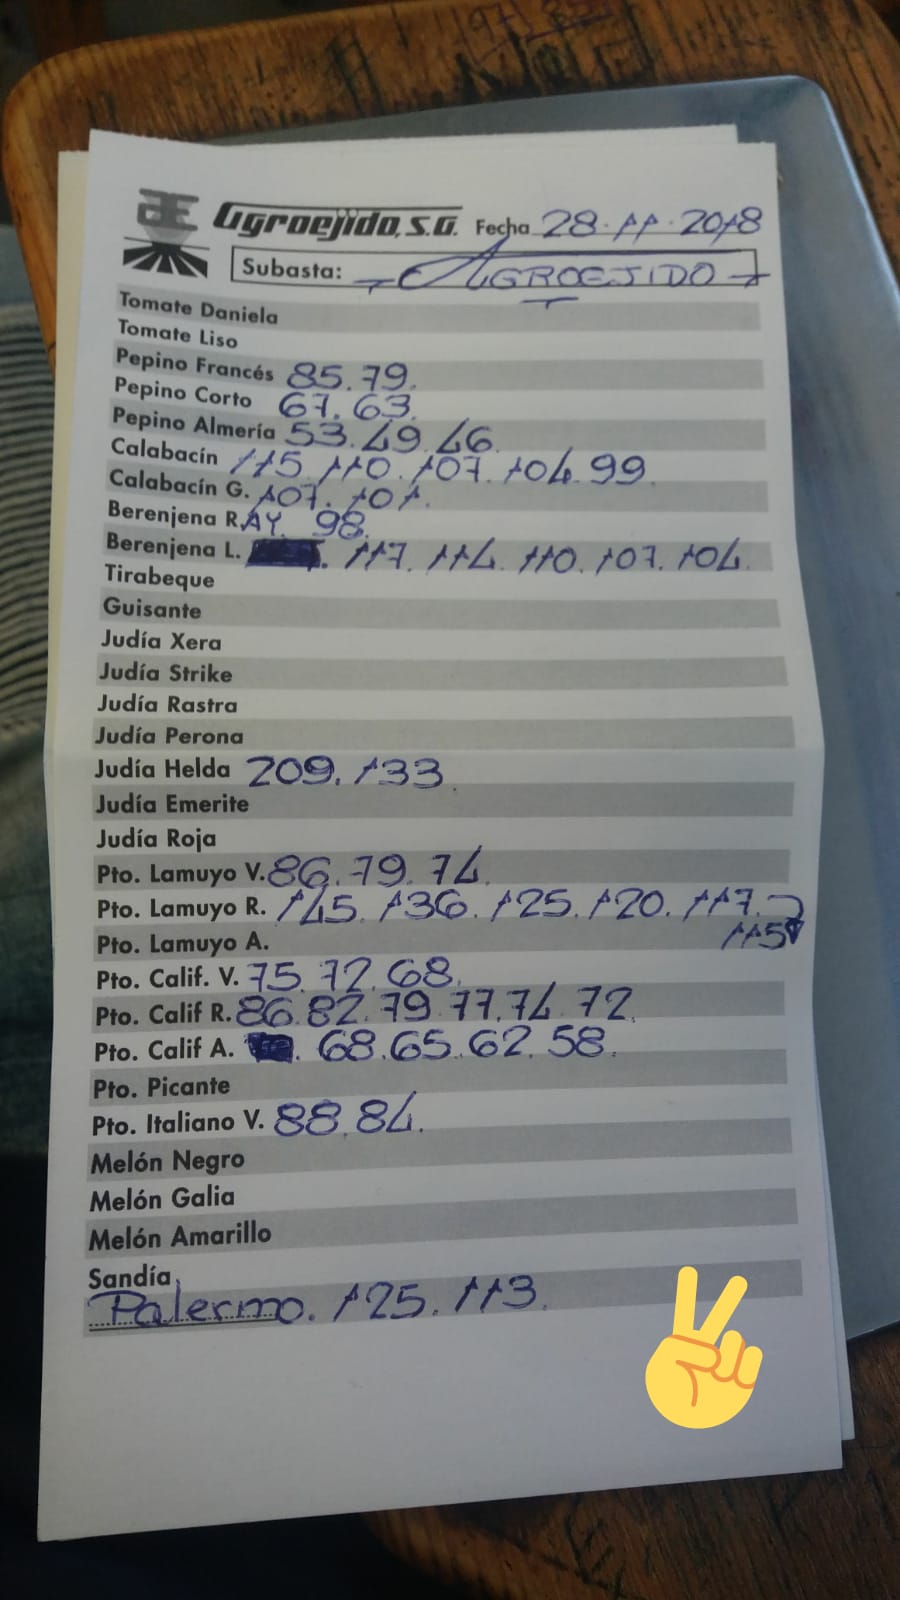 Agroejido, S.A. Fecha 28.11.2018
Subasta: AGROEJIDO
Tomate Daniela
Tomate Liso
Pepino Francés 85.79.
Pepino Corto 67.63.
Pepino Almería 53.49.46.
Calabacín 115.110.107.104.99.
Calabacín G. 107.101.
Berenjena RAY. 98.
Berenjena L. 117.114.110.107.104.
Tirabeque
Guisante
Judía Xera
Judía Strike
Judía Rastra
Judía Perona
Judía Helda 209.133.
Judía Emerite
Judía Roja
Pto. Lamuyo V. 86.79.74.
Pto. Lamuyo R. 145.136.125.120.117.
115
Pto. Lamuyo A.
Pto. Calif. V. 75.72.68.
Pto. Calif R. 86.82.79.77.74.72.
Pto. Calif A. 68.65.62.58.
Pto. Picante
Pto. Italiano V. 88.84.
Melón Negro
Melón Galia
Melón Amarillo
Sandía
Palermo. 125.113.